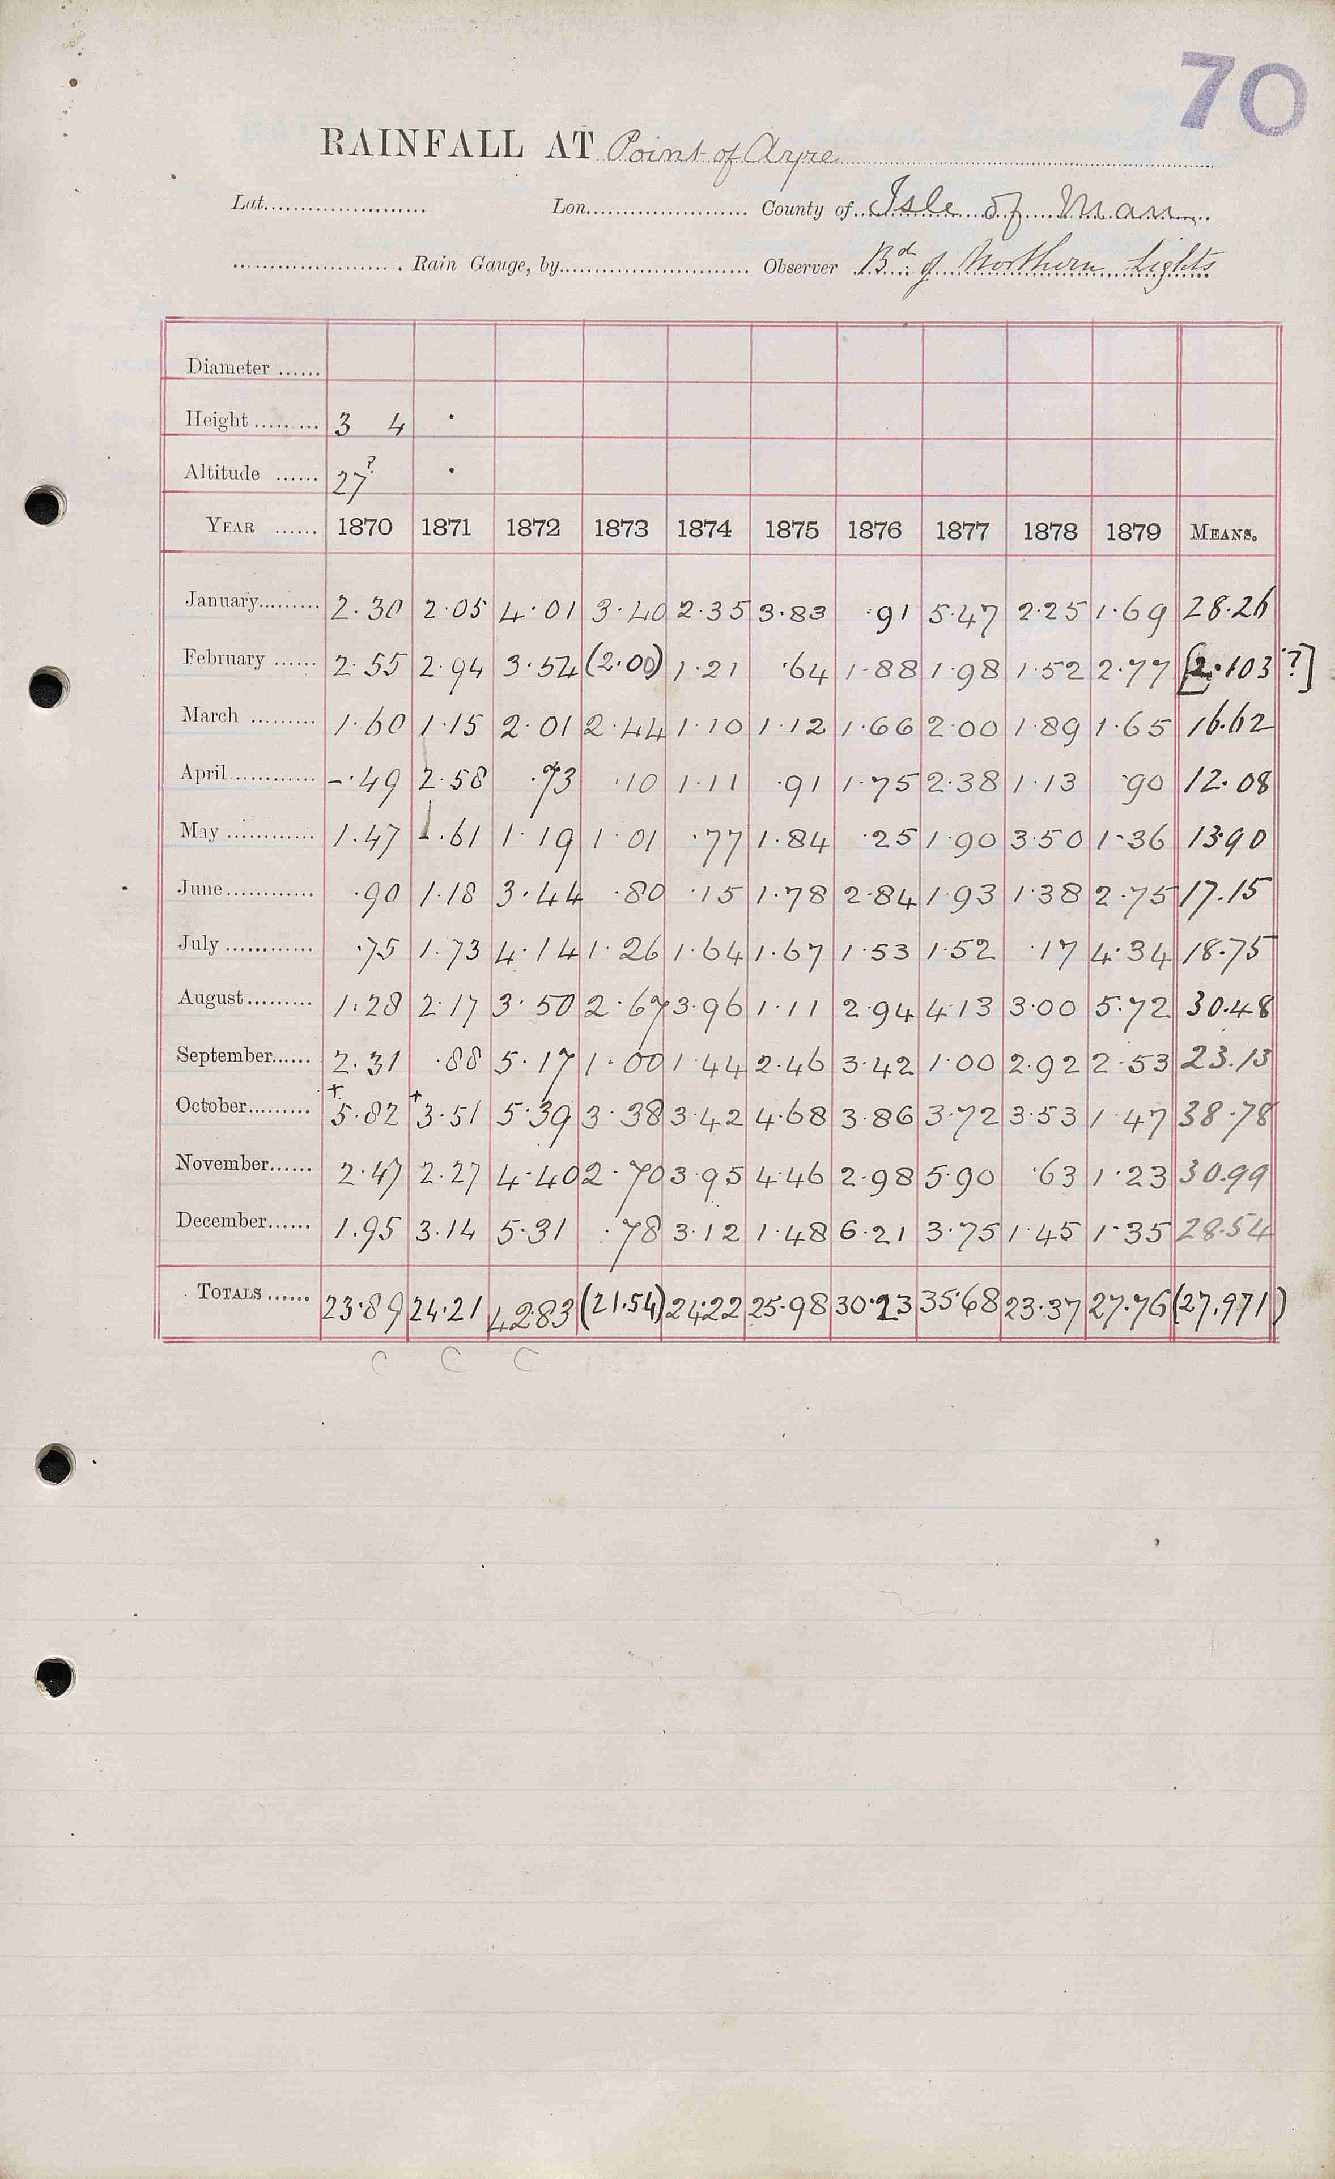 70
RAINFALL AT Point of Ayre
Lat. Lon. County of Isle of Man
Rain Gauge, by Observer Bd. of Northern Lights
Diameter
Height 3 4 ·
Altitude 27? ·
YEAR 1870 1871 1872 1873 1874 1875 1876 1877 1878 1879 MEANS.
January 2.30 2.05 4.01 3.40 2.35 3.83 .91 5.47 2.25 1.69 28.26
February 2.55 2.94 3.54 (2.00) 1.21 .64 1.88 1.98 1.52 2.77 [2.103?]
March 1.60 1.15 2.01 2.44 1.10 1.12 1.66 2.00 1.89 1.65 16.62
April -.49 2.58 .73 .10 1.11 .91 1.75 2.38 1.13 .90 12.08
May 1.47 1.61 1.19 1.01 .77 1.84 .25 1.90 3.50 1.36 13.90
June .90 1.18 3.44 .80 .15 1.78 2.84 1.93 1.38 2.75 17.15
July .75 1.73 4.14 1.26 1.64 1.67 1.53 1.52 .17 4.34 18.75
August 1.28 2.17 3.50 2.67 3.96 1.11 2.94 4.13 3.00 5.72 30.48
September 2.31 .88 5.17 1.00 1.44 2.46 3.42 1.00 2.92 2.53 23.13
October +5.82 +3.51 5.39 3.38 3.42 4.68 3.86 3.72 3.53 1.47 38.78
November 2.47 2.27 4.40 2.70 3.95 4.46 2.98 5.90 .63 1.23 30.99
December 1.95 3.14 5.31 .78 3.12 1.48 6.21 3.75 1.45 1.35 28.54
TOTALS 23.89 24.21 42.83 (21.54) 24.22 25.98 30.23 35.68 23.37 27.76 (27.971)
C C C